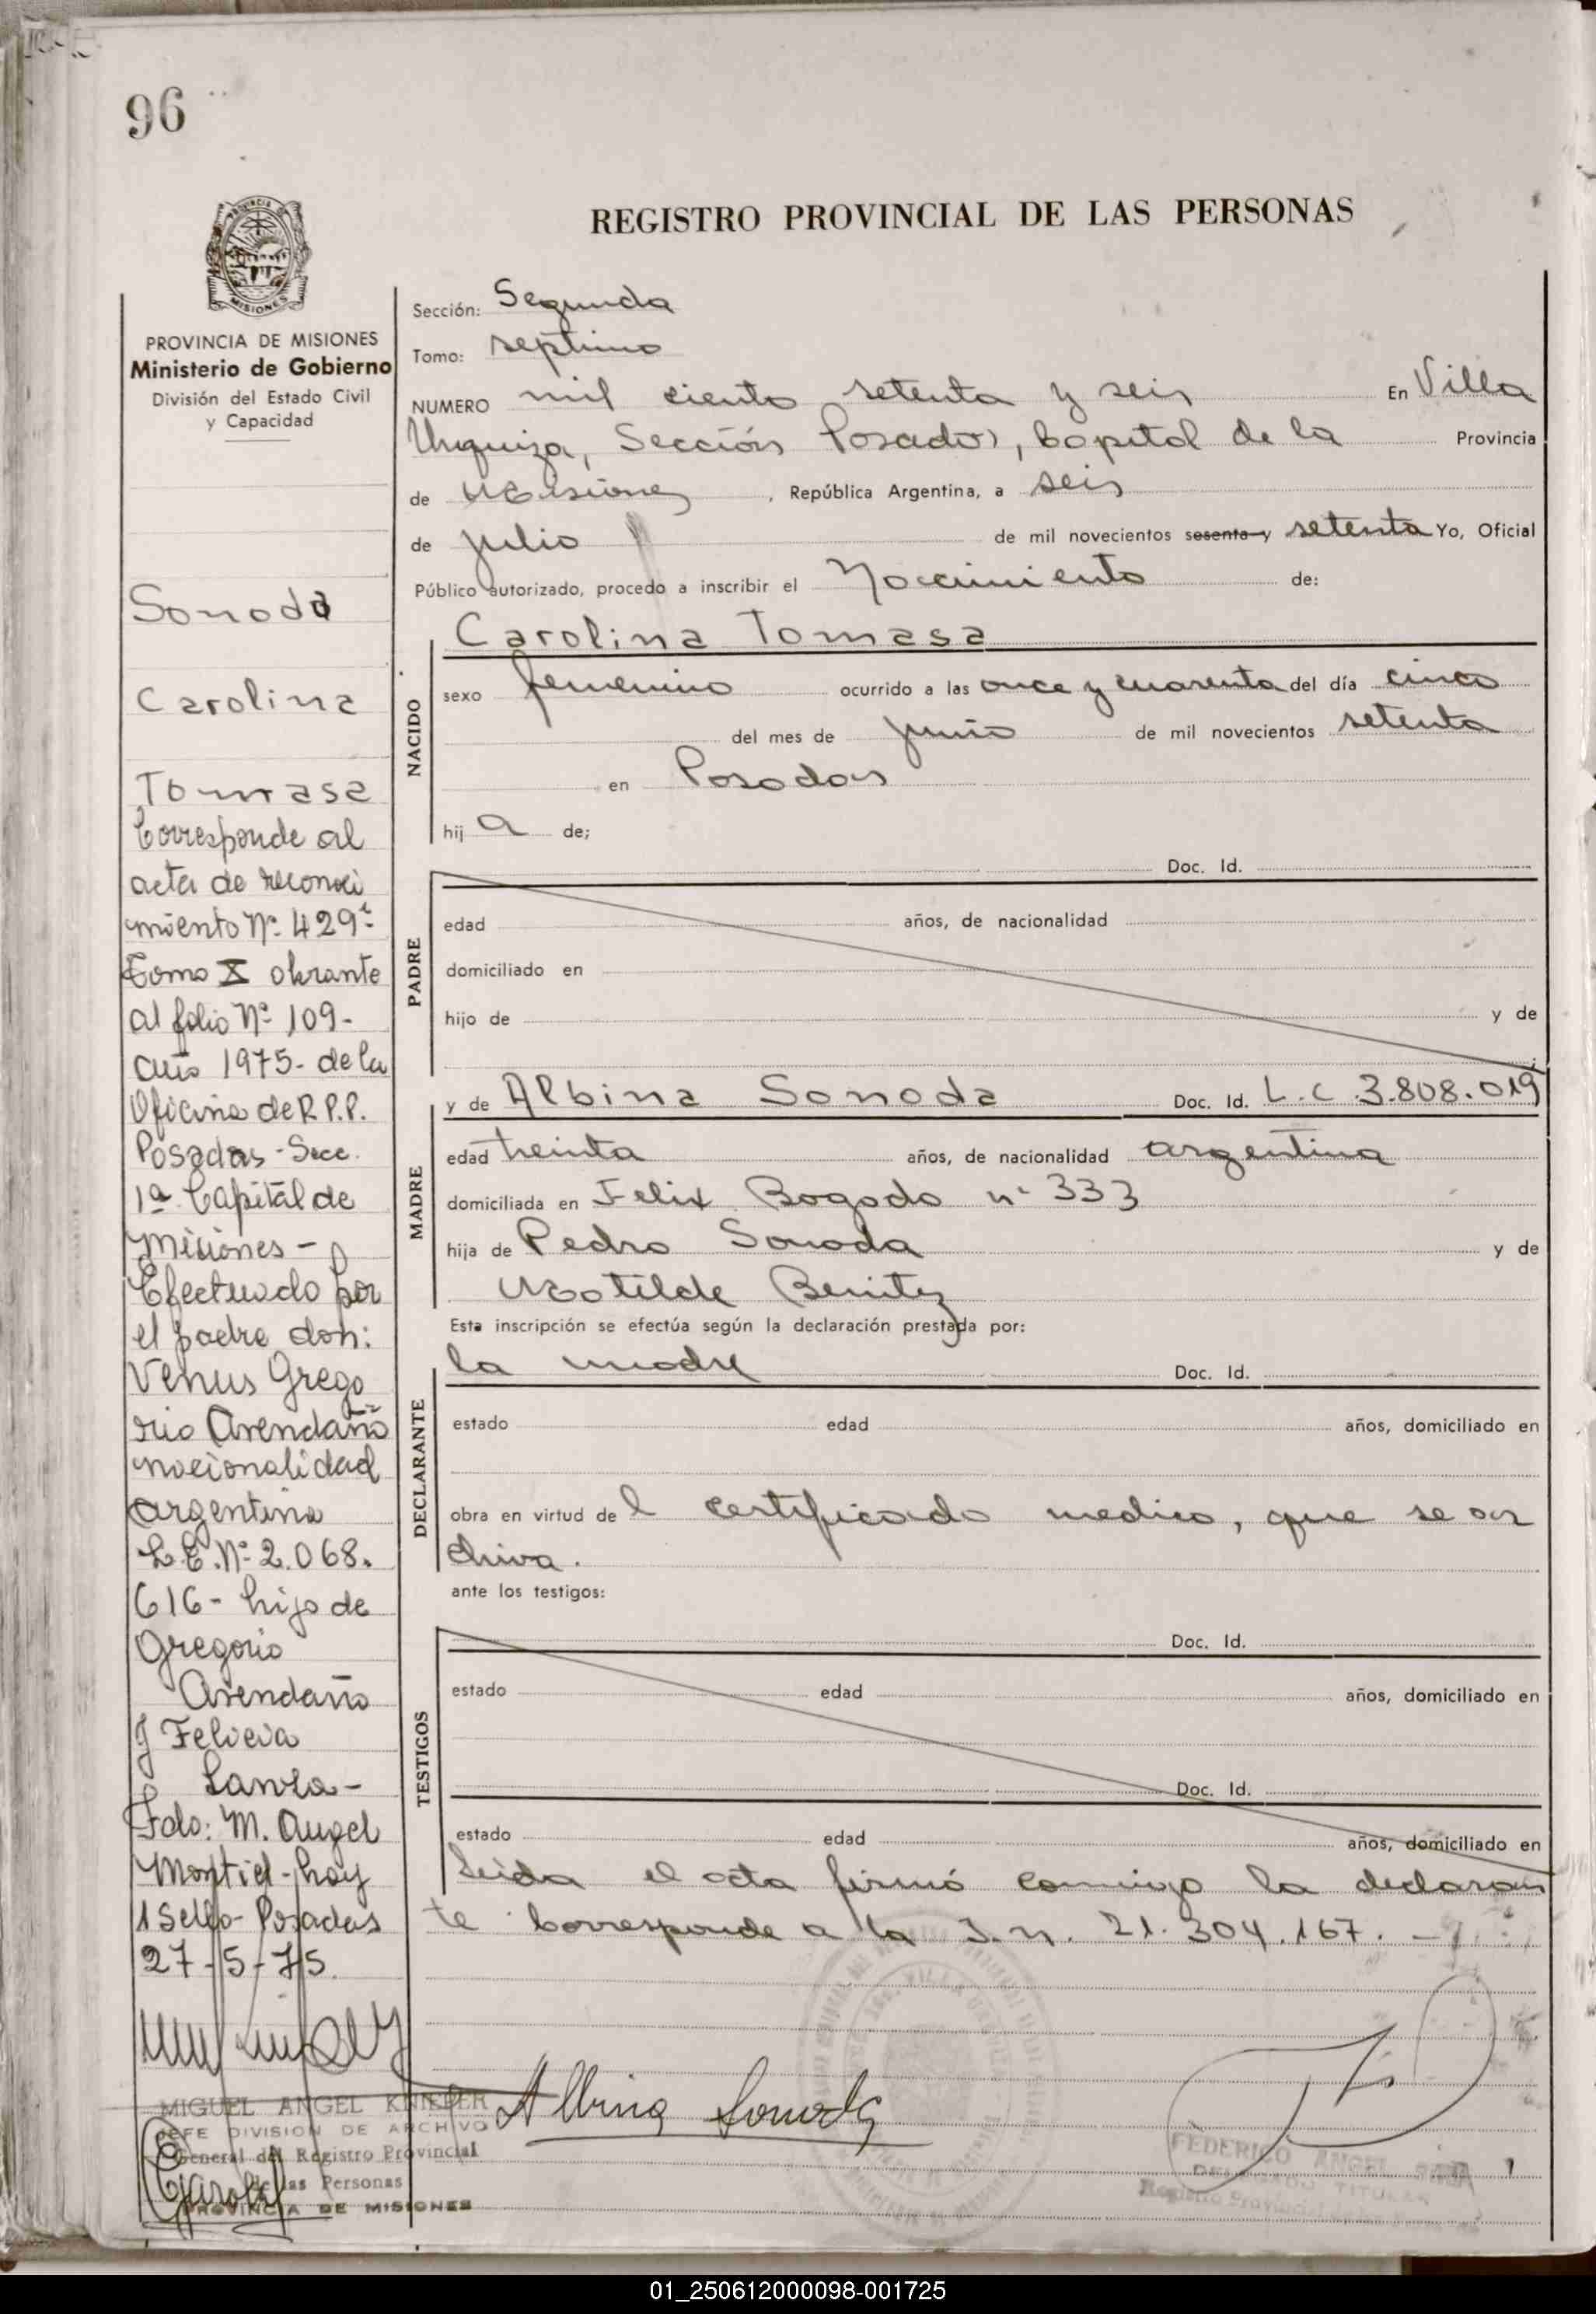 96
REGISTRO PROVINCIAL DE LAS PERSONAS
PROVINCIA DE
MISIONES
PROVINCIA DE MISIONES
Ministerio de Gobierno
División del Estado Civil
y Capacidad
Sonoda
Carolina
Tomasa
Corresponde al
acta de reconoci
miento Nº 429-
Tomo X obrante
al folio Nº 109-
Año 1975- de la
Oficina de R.P.P.
Posadas - Secc.
1ª Capital de
Misiones -
Efectuado por
el padre don:
Venus Grego
rio Arendaño
nacionalidad
argentina
L.E. Nº 2.068.
616- hijo de
Gregorio
Arendaño
y Felicia
Fdo: M. Angel
Montiel - hay
1 Sello - Posadas
27-5-75.
MIGUEL ANGEL KNIEPER
JEFE DIVISION DE ARCHIVO
General del Registro Provincial
de las Personas
PROVINCIA DE MISIONES
Sección: Segunda
Tomo: septimo
NUMERO mil ciento setenta y seis En Villa
Urquiza, Sección Posadas, Capital de la Provincia
de Misiones, República Argentina, a seis
de julio de mil novecientos sesenta y setenta Yo, Oficial
Público autorizado, procedo a inscribir el Nacimiento de:
Carolina Tomasa
NACIDO
sexo femenino ocurrido a las once y cuarenta del día cinco
del mes de junio de mil novecientos setenta
en Posadas
hija de;
PADRE
Doc. Id.
edad años, de nacionalidad
domiciliado en
hijo de y de
;
MADRE
y de Albina Sonoda Doc. Id. L.C 3.808.019
edad treinta años, de nacionalidad argentina
domiciliada en Felix Bogado nº 333
hija de Pedro Sonoda y de
Matilde Benitez
Esta inscripción se efectúa según la declaración prestada por:
DECLARANTE
la madre Doc. Id.
estado edad años, domiciliado en
obra en virtud del certificado medico, que se ar
chiva.
ante los testigos:
TESTIGOS
Doc. Id.
estado edad años, domiciliado en
Doc. Id.
estado edad años, domiciliado en
Leida el acta firmó conmigo la declaran
te. Corresponde a la I.n. 21.304.167. -
Albina Sonoda
FEDERICO ANGEL
DELEGADO TITULAR
Registro Provincial de las Personas
01_250612000098-001725